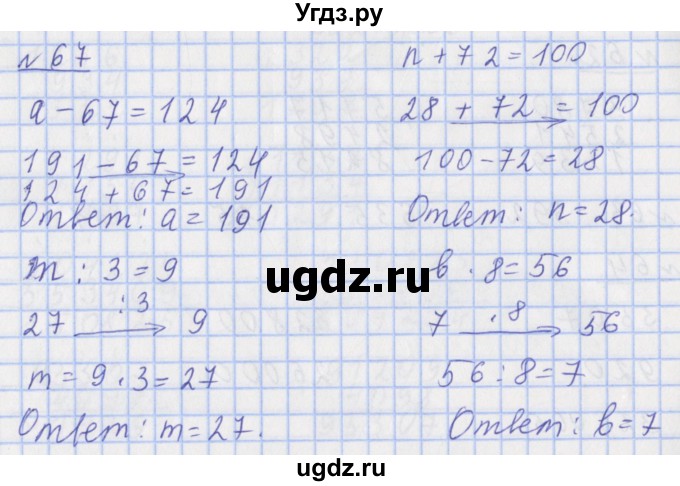 Угдз.ру
№ 67
a - 67 = 124
191 - 67 = 124
124 + 67 = 191
Ответ: a = 191
n + 72 = 100
28 + 72 = 100
100 - 72 = 28
Ответ: n = 28.
ugdz.ru
m : 3 = 9
: 3
27 → 9
m = 9 · 3 = 27
Ответ: m = 27.
в · 8 = 56
· 8
7 → 56
56 : 8 = 7
Ответ: в = 7
ugdz.ru